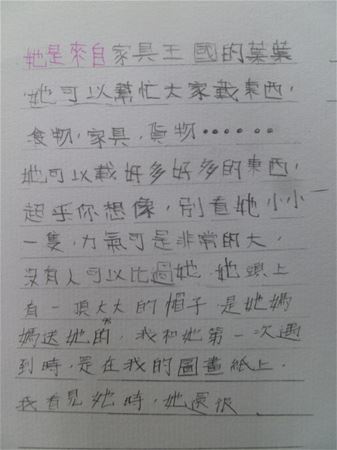 她是來自家具王國的葉葉
她可以幫忙大家載東西,
食物,家具,貨物……
她可以載好多好多的東西,
超乎你想像,別看她小小
一隻,力氣可是非常的大,
沒有人可以比過她,她頭上
有一頂大大的帽子,是她媽
媽送她的,我和她第一次遇
到時,是在我的圖畫紙上,
我看見她時,她還很